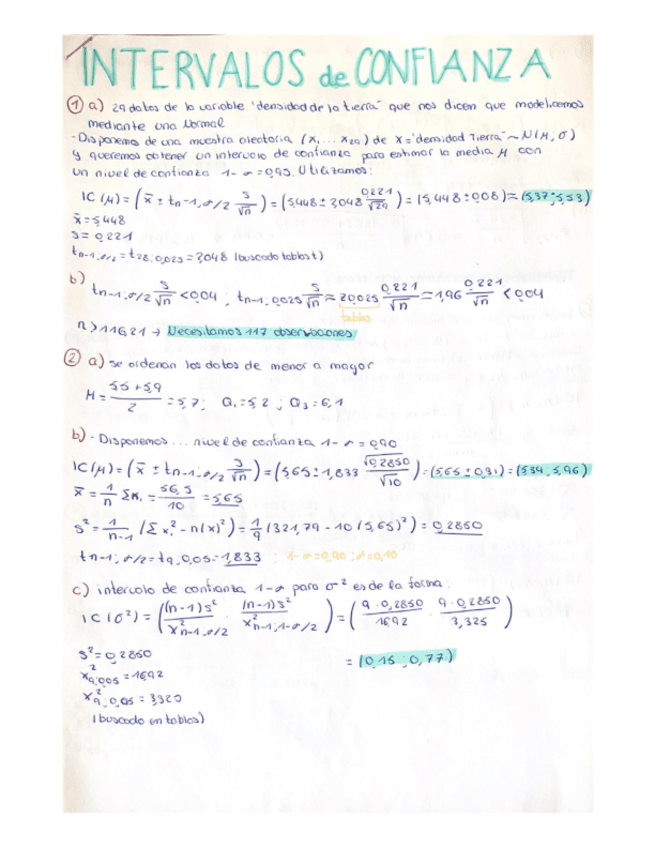 INTERVALOS de CONFIANZA
① a) 29 datos de la variable "densidad de la tierra" que nos dicen que modelicemos
mediante una Normal.
- Disponemos de una muestra aleatoria (x₁...x₂₉) de X="densidad Tierra" ~ N(μ,σ)
y queremos obtener un intervalo de confianza para estimar la media μ con
un nivel de confianza 1-α=0,95. Utilizamos:
IC(μ) = (x̄ ± tn-1,α/2 s/√n) = (5,448 ± 2,048 0,221/√29) = (5,448 ± 0,08) ≈ (5,37;5,53)
x̄ = 5,448
s = 0,221
tn-1,α/2 = t28,0,025 = 2,048 (buscado tablas t)
b)
tn-1,α/2 s/√n < 0,04 ; tn-1,0,025 s/√n ≈ z0,025 0,221/√n = 1,96 0,221/√n < 0,04
tabla
n > 116,21 → Necesitamos 117 observaciones
② a) se ordenan los datos de menor a mayor
M = 5,5 + 5,9 / 2 = 5,7 ; Q₁ = 5,2 ; Q₃ = 6,1
b) - Disponemos ... nivel de confianza 1-α = 0,90
IC(μ) = (x̄ ± tn-1,α/2 s/√n) = (5,65 ± 1,833 √0,2850/√10) = (5,65 ± 0,31) = (5,34, 5,96)
x̄ = 1/n Σxᵢ = 56,5/10 = 5,65
s² = 1/n-1 (Σxᵢ² - n(x̄)²) = 1/9 (321,79 - 10(5,65)²) = 0,2850
tn-1;α/2 = t9;0,05 = 1,833 ; 1-α=0,90 ; α=0,10
c) intervalo de confianza 1-α para σ² es de la forma:
IC(σ²) = ((n-1)s²/χ²n-1,α/2 , (n-1)s²/χ²n-1,1-α/2) = (9·0,2850/16,92 , 9·0,2850/3,325)
s² = 0,2850 = (0,15 ; 0,77)
χ²9;0,05 = 16,92
(buscado en tablas)